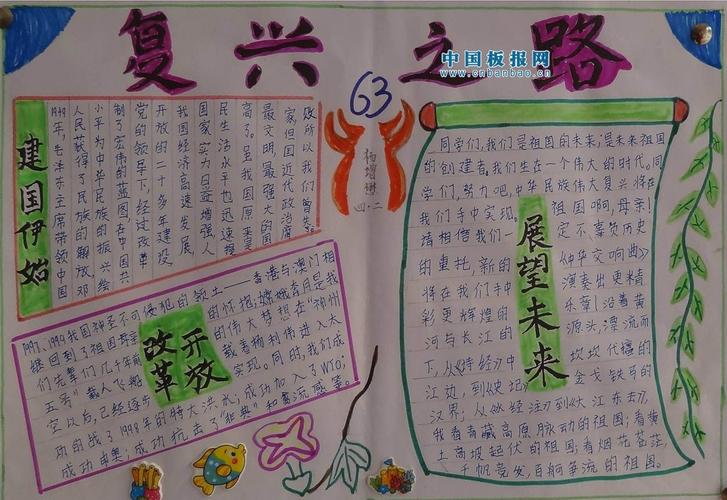 复兴之路
中国板报网
www.cnbanbao.cn
63
四·二
建国伊始
1949年，毛泽东主席带领中国
人民获得了民族的解放。邓
小平为中华民族的振兴绘
制了宏伟的蓝图在中国共
党的领导下，经过改革
开放的二十多年建设
我国经济高速发展，
国家实力日益增强人
民生活水平也迅速提
高了。虽我国原来是
最文明、最强大的国
家，但国近代政治腐
败所以我们曾失
改革开放
1997、1999我国神圣不可侵犯的领土——香港与澳门相
继回到了祖国母亲的怀抱；嫦娥奔月是我
们先辈们几千年前的伟大梦想在“神州
五号”载人飞船载着杨利伟进入太
空以后，已经逐步实现。同时，我们成
功的战了1998年的特大洪水；成功加入了WTO；
成功申奥；成功抗击了“非典”和禽流感等。
展望未来
同学们，我们是祖国的未来；是未来祖国
的创建者，我们生在一个伟大的时代。同
学们，努力吧，中华民族伟大复兴将在
我们手中实现。祖国啊，母亲！
请相信我们一定不辜负历史
的重托，新的《中华交响曲》
将在我们手中演奏出更精
彩更辉煌的乐章！沿着黄
河与长江的源头；漂流而
下，从《诗经》中坎坎代檀的
江边，到《史记》金戈铁马的
汉界；从《水经注》到《大江东去》，
我看青藏高原脉动的祖国；看黄
土高坡起伏的祖国；看烟花苍茫，
千帆竞发，百舸争流的祖国。